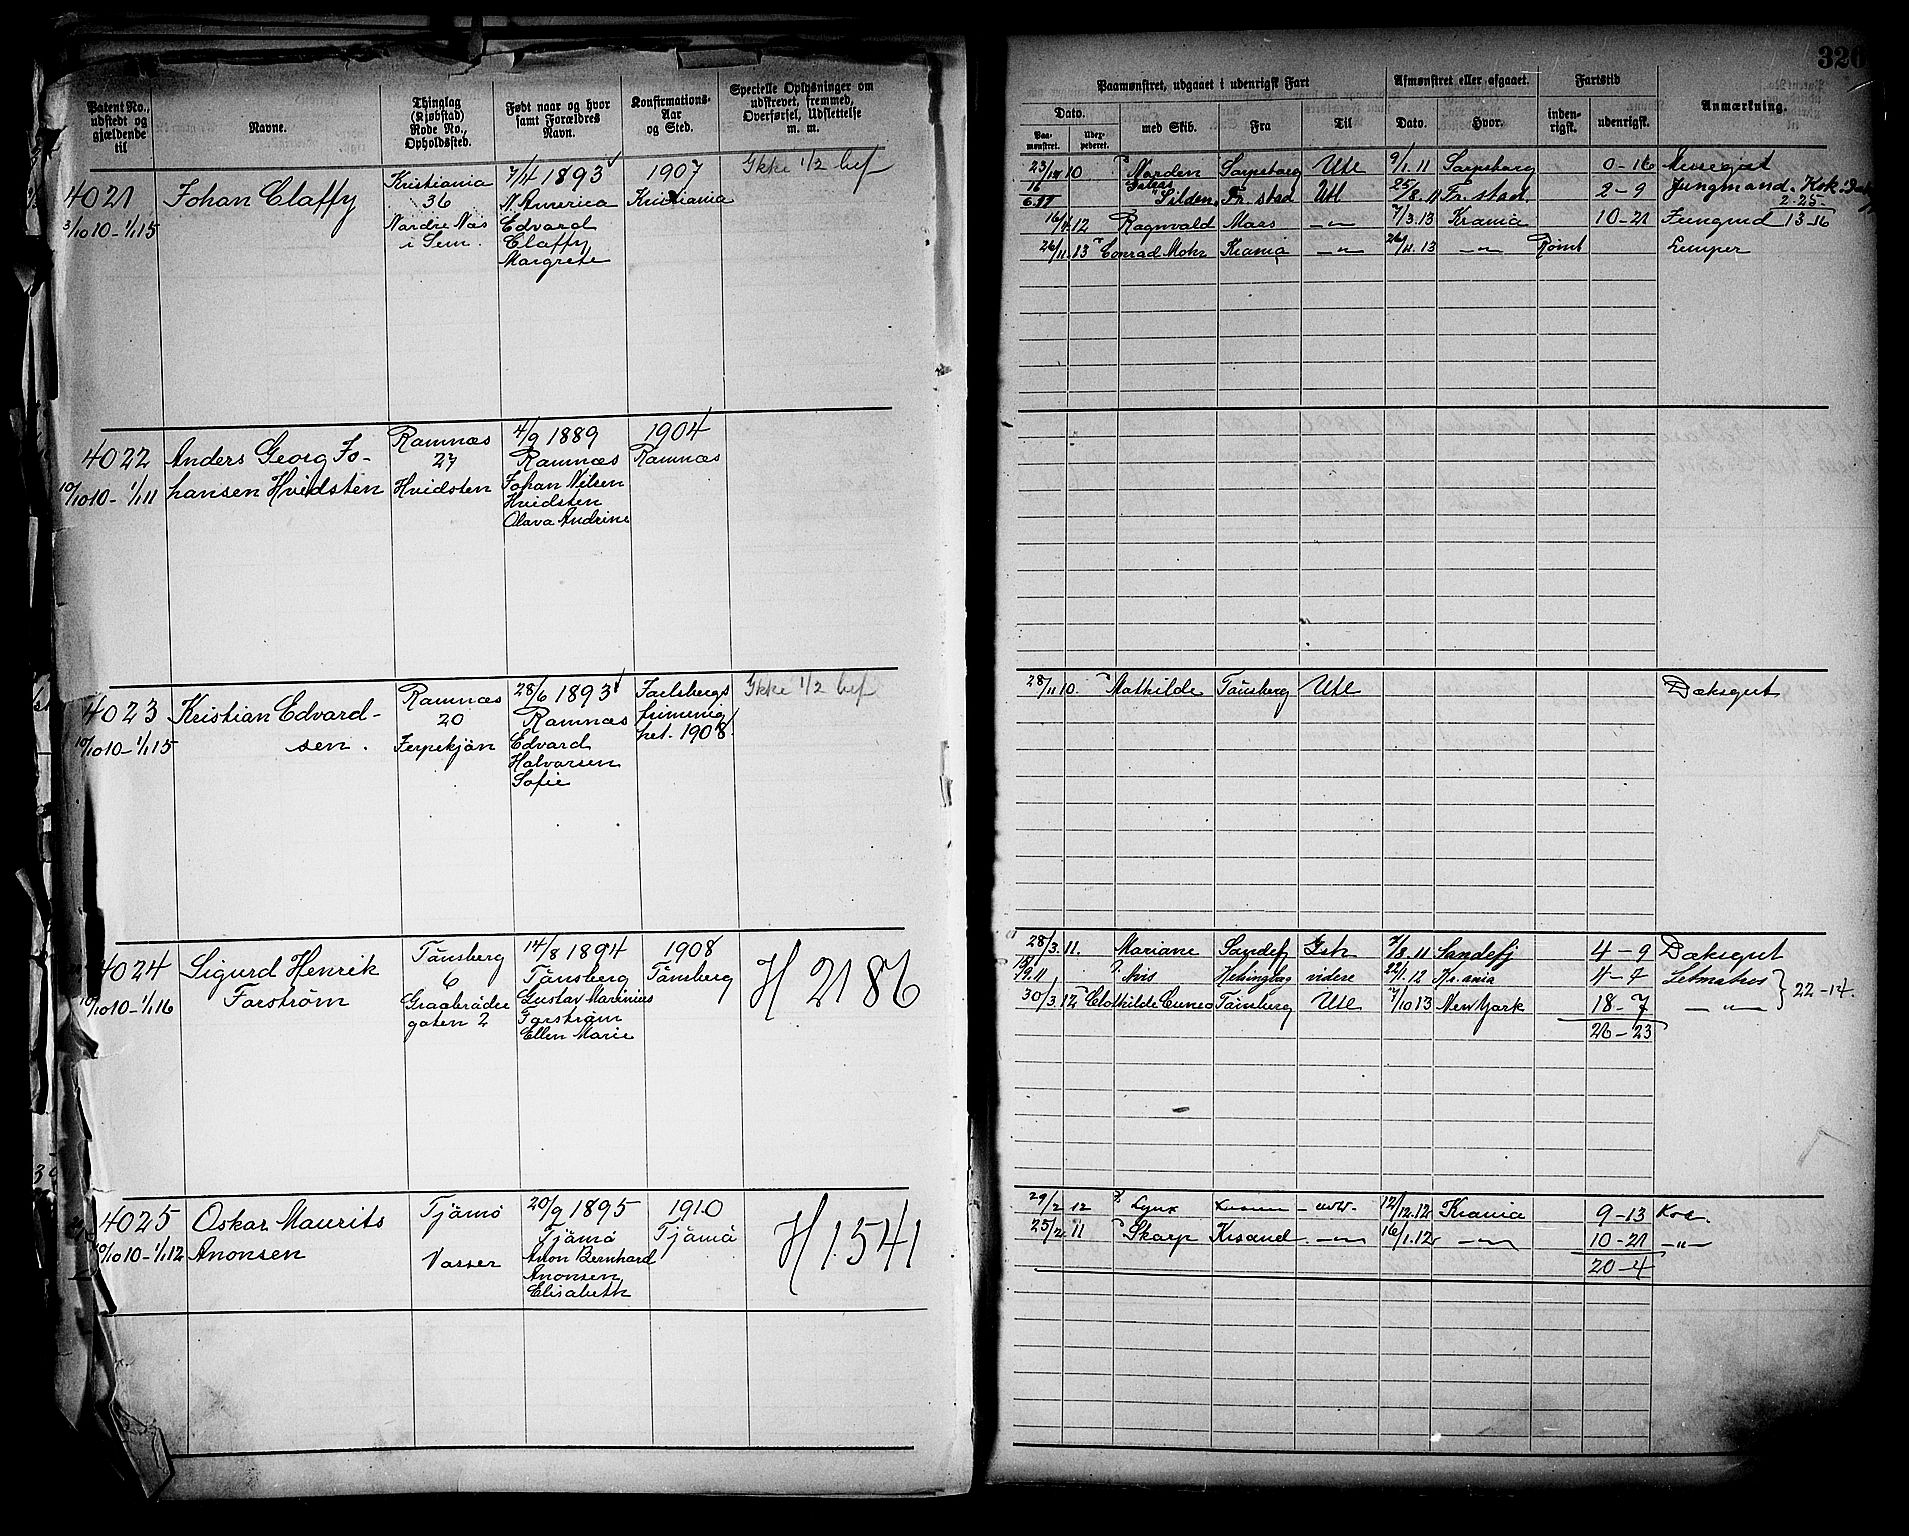 326
Patent No., udstedt og gjældende til
Navne.
Thinglag (Kjøbstad) Rode No., Opholdssted.
Født naar og hvor samt Forældres Navn.
Konfirmations-Aar og Sted.
Specielle Oplysninger om udskrevet, fremmed, Overførsel, Udslettelse m. m.
Paamønstret, udgaaet i udenrigsk Fart
Afmønstret eller afgaaet.
Fartstid
Anmærkning.
Dato.
Paa-mønstret.
Udex-pederet.
med Skib.
Fra
Til
Dato.
Hvor.
inden-rigsk.
udenrigsk.
4021
3/10 10 - 1/1 15
Johan Claffy
Kristiania
36
Nordre Næs
i Sem.
7/4 1893
N. America
Edvard
Claffy
Margrete
1907
Kristiania
Ikke 1/2 bef
Norden Sarpsborg Utl 9/1.11 Sarpsborg 0-16
Silden Fr.stad Utl. 25/8.11 Fr.stad. 2-9 Jungmand
2-25
16/4 12 Ragnvald Moss -"- 7/3.13 Krania 10-21 Jungmd 13-16
26/11.13 Conrad Mohr Krania -"- 26/11.13 -"- Rømt Lemper
4022
10/10 10 - 1/1 11
Anders Georg Jo-
hansen Hvidsten
Ramnæs
27
Hvidsten
4/9 1889
Ramnæs
Johan Nilsen
Hvidsten
Olava Andrine
1904
Ramnæs
4023
10/10 10 - 1/1 15
Kristian Edvard-
sen.
Ramnæs
20
28/6 1893
Ramnæs
Edvard
Halvorsen
Sofie
Jarlsbergs
frimenig
het. 1908.
Ikke 1/2 bef
28/11 10. Mathilde Tönsberg Utl Dæksgut
4024
10/10 10 - 1/1 16
Sigurd Henrik
Forström
Tönsberg
6
Graabrødre
gaten 2
14/8 1894
Tönsberg
Gustav Martinius
Forström
Ellen Marie
1908
Tönsberg
H 2186
28/3.11. Mariane Sandefj 7/8.11 Sandefj 4-9 Dæksgut
Avis videre 22/1.12 Kr.ania 4-7 Letmatros
30/3.12 Clothilde Cuneo Tönsberg Utl 7/10 13 New York 18-7 -"- 22-14.
26-23
4025
10/10 10 - 1/1 12
Oskar Maurits
Anonsen
Tjømø
Vasser
20/9 1895
Tjømø
Anon Bernhard
Anonsen
Elisabeth
1910
Tjømø
H 1541
29/2 12 Lynx 12/12.12 Krania 9-13 Kok.
25/2 11 Skarp Krsand. -"- 16/1.12 -"- 10-21 -"-
20-4